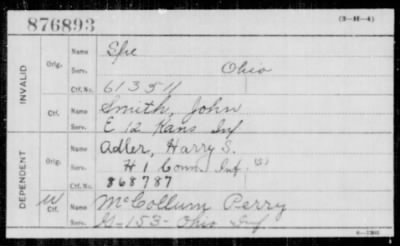 876893
(3-H-4)
INVALID
Orig.
Name Spe
Serv. Ohio
Ctf. No. 613511
Ctf.
Name Smith, John
Serv. E 12 Kans Inf
DEPENDENT
Orig.
Name Adler, Harry S.
Serv. H 1 Conn. Inf. (S)
Ctf. No. 868787
W
Ctf.
Name McCollum Perry
Serv. G-153-Ohio Inf